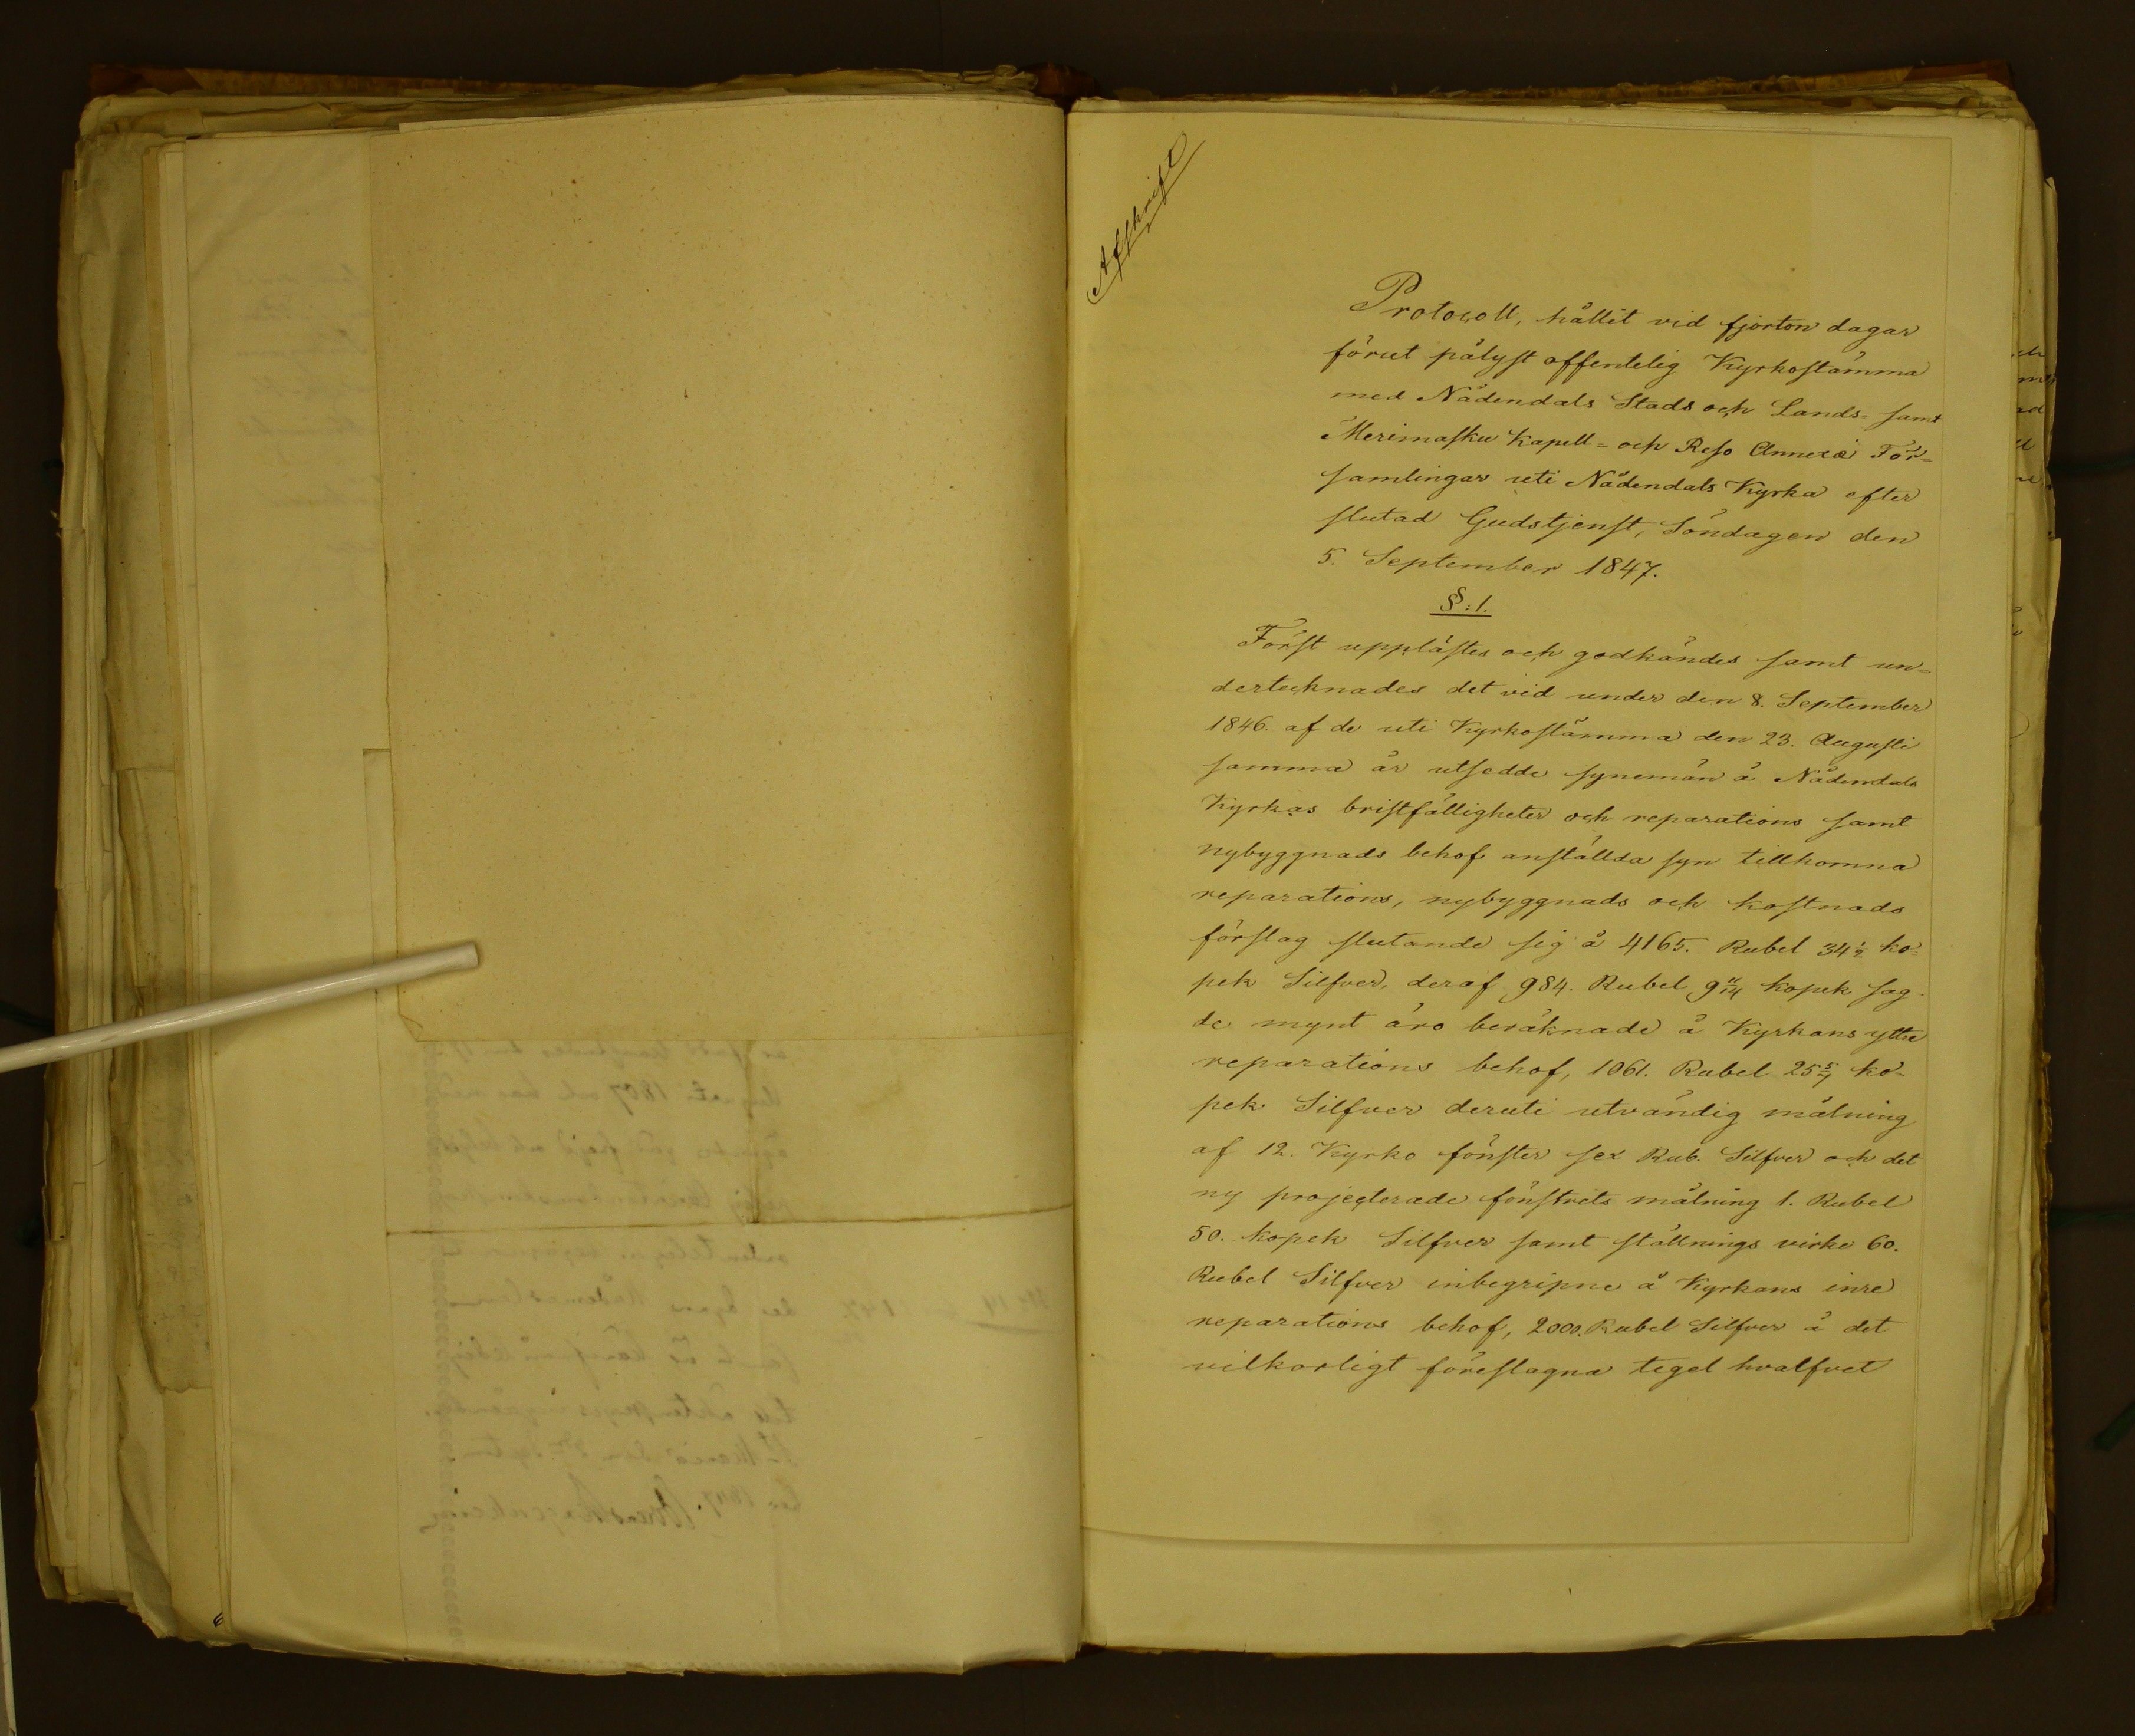 Afskrift
Protocoll, hållit vid fjorton dagar
förut pålyst offentelig Kyrkostämma
med Nådendals Stads och Lands- samt
Merimasku Kapell- och Reso Annexe För-
samlingar uti Nådendals Kyrka efter
slutad Gudstjenst, Söndagen den
5. September 1847.
§: 1.
Först upplästes och godkändes samt un-
dertecknades det vid under den 8. September
1846. af de uti Kyrkostämma den 23. Augusti
samma år utsedde synemän å Nådendals
Kyrkas bristfälligheter och reparations samt
nybyggnads behof anställda syn tillkomna
reparations, nybyggnads och kostnads
förslag slutande sig å 4165. Rubel 34 1/2 ko-
pek Silfver, deraf 984. Rubel 9 11/14 kopek sag-
de mynt äro beräknade å Kyrkans yttre
reparations behof, 1061. Rubel 25 5/7 ko-
pek Silfver deruti utvändig målning
af 12. Kyrko fönster sex Rub. Silfver och det
ny projecterade fönstrets målning 1. Rubel
50. kopek Silfver samt ställnings virke 60.
Rubel Silfver inbegripne å Kyrkans inre
reparations behof, 2000. Rubel Silfver å det
vilkorligt föreslagna tegel hvalfvet